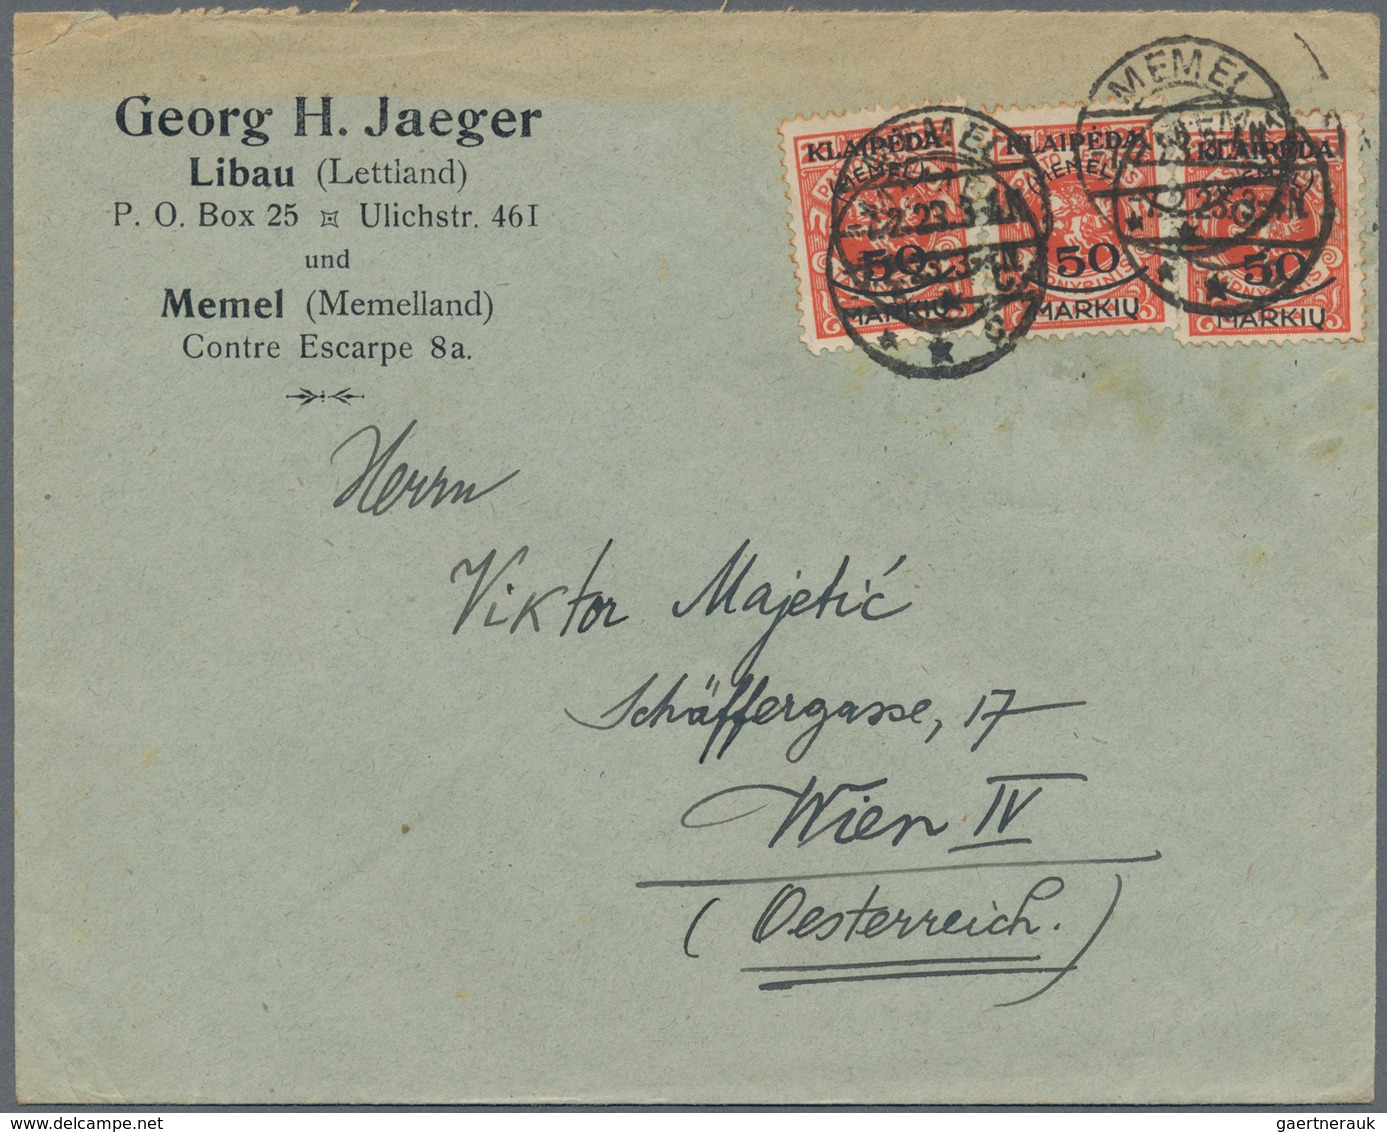 Georg H. Jaeger
Libau (Lettland)
P. O. Box 25 ¤ Ulichstr. 461
und
Memel (Memelland)
Contre Escarpe 8a.
KLAIPĖDA
(MEMEL)
50
MARKIŲ
KLAIPĖDA
(MEMEL)
50
MARKIŲ
KLAIPĖDA
(MEMEL)
50
MARKIŲ
MEMEL
Herrn
Viktor Majetić
Schäffergasse, 17
Wien IV
(Oesterreich.)
gaertnerauk